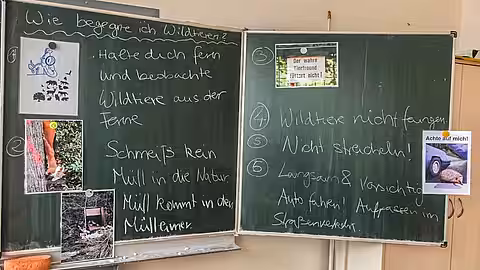 Wie begegne ich Wildtieren?
①
• Halte dich fern
und beobachte
Wildtiere aus der
Ferne
②
Schmeiß kein
Müll in die Natur
Müll kommt in den
Mülleimer
③
Der wahre
Tierfreund
füttert nicht!
④ Wildtiere nicht fangen.
⑤ Nicht streicheln!
⑥ Langsam & Vorsichtig
Auto fahren! Aufpassen im
Straßenverkehr.
Achte auf mich!